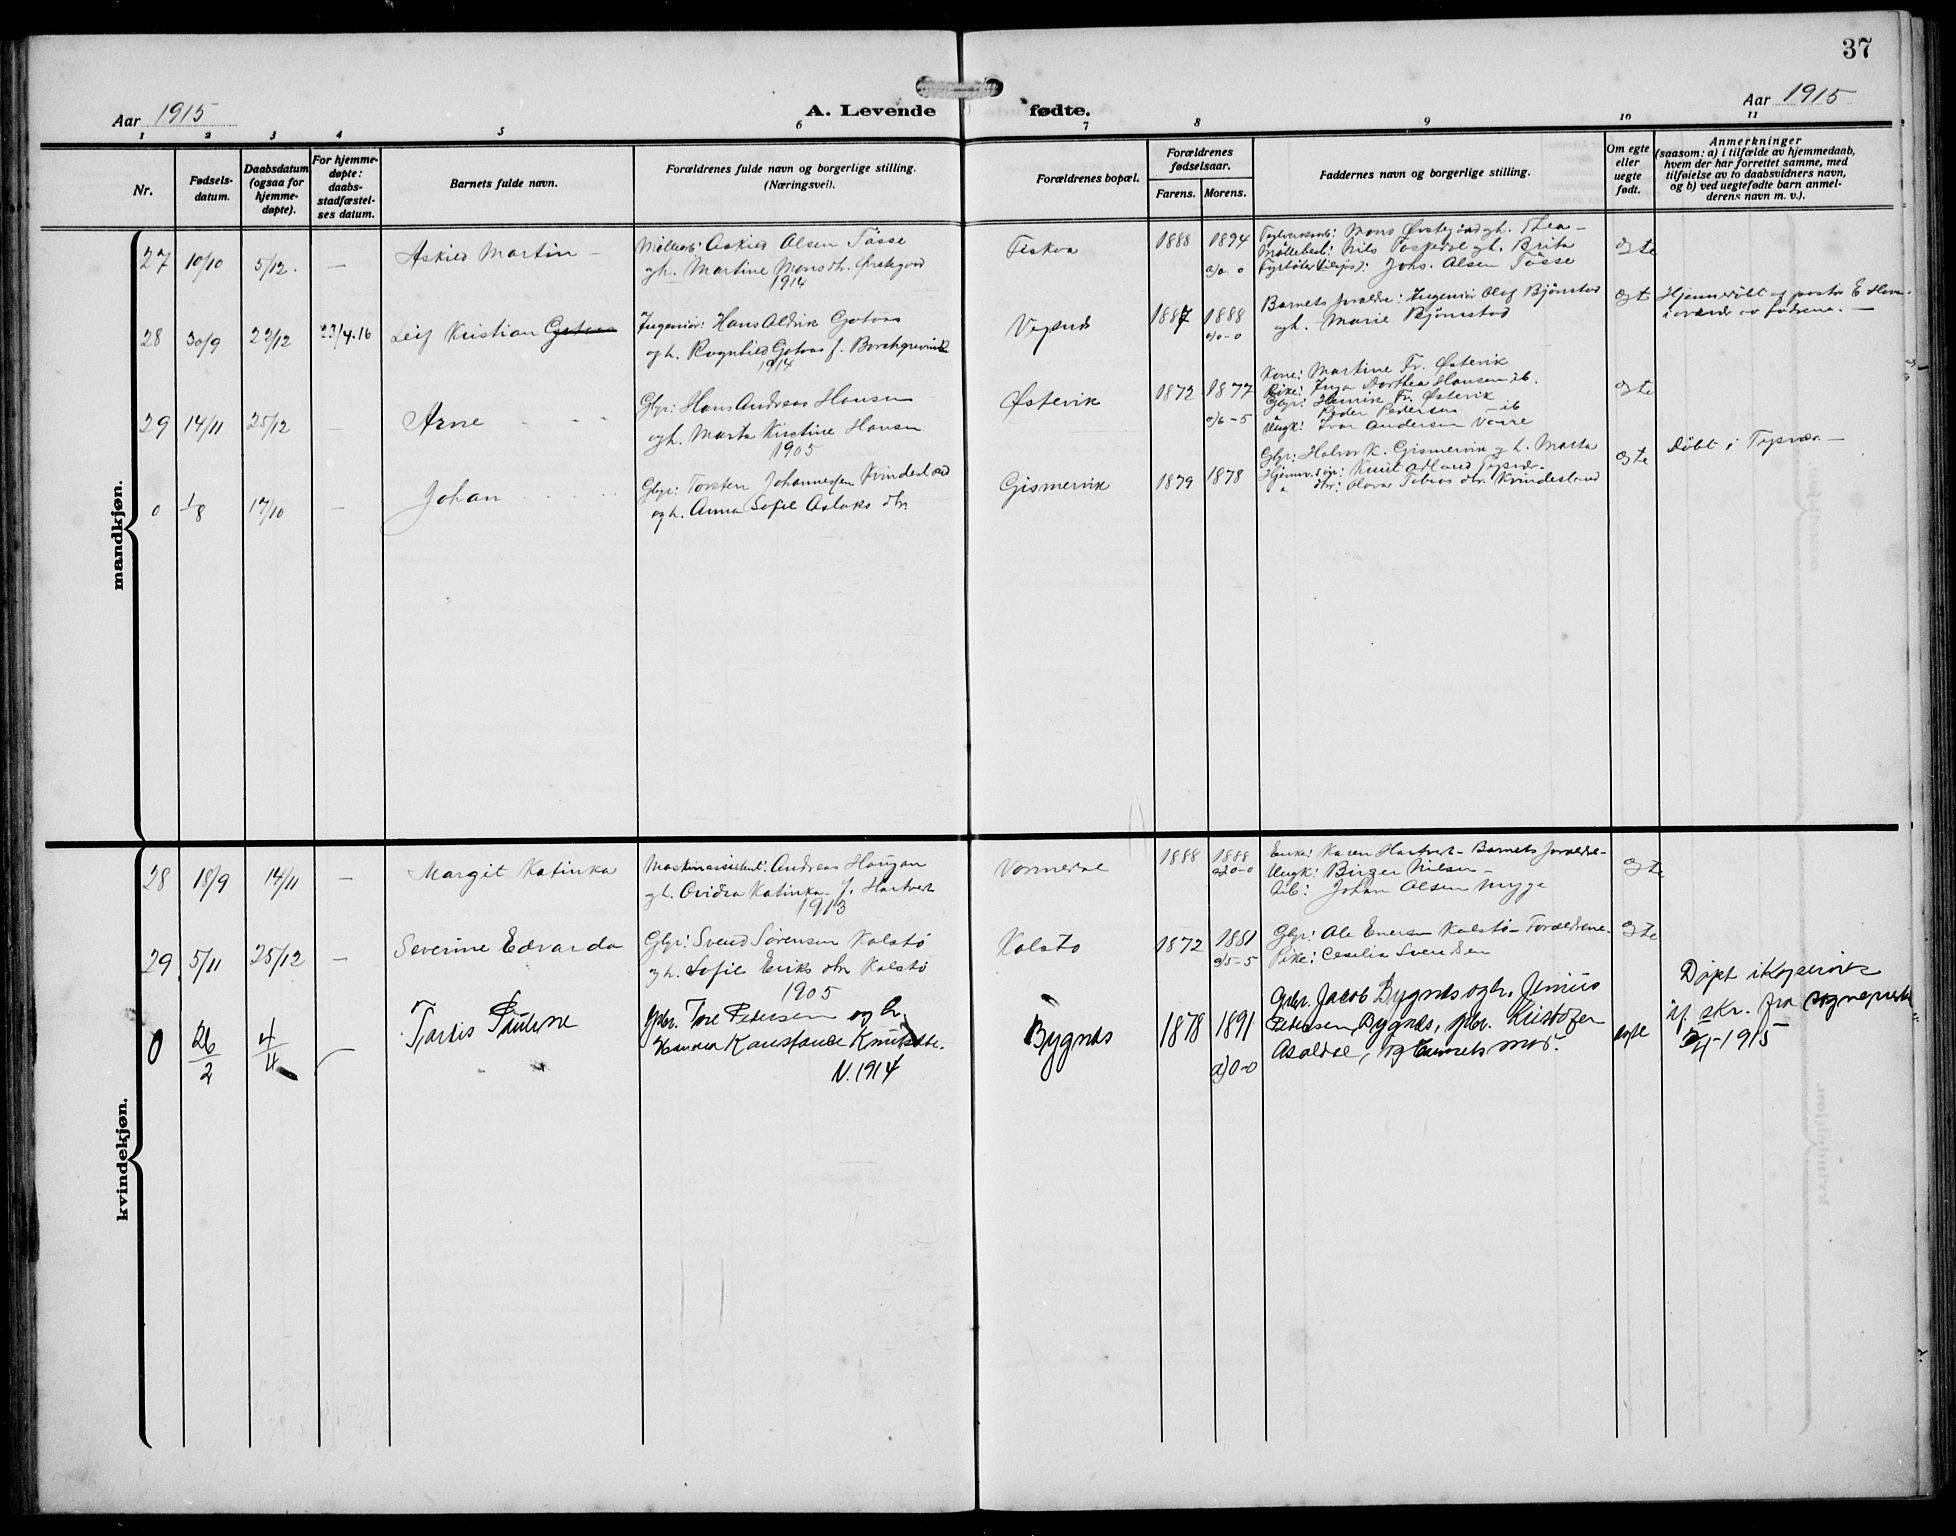 37
Aar 1915
A. Levende fødte.
Aar 1915
1 2 3 4 5 6 7 8 9 10 11
Nr.
Fødsels-
datum.
Daabsdatum
(ogsaa for
hjemme-
døpte).
For hjemme-
døpte:
daabs-
stadfæstel-
ses datum.
Barnets fulde navn.
Forældrenes fulde navn og borgerlige stilling.
(Næringsvei).
Forældrenes bopæl.
Forældrenes
fødselsaar.
Farens. Morens.
Faddernes navn og borgerlige stilling.
Om egte
eller
uegte
født.
Anmerkninger
(saasom: a) i tilfælde av hjemmedaab,
hvem der har forrettet samme, med
tilføielse av to daabsvidners navn,
og b) ved uegtefødte barn anmel-
derens navn m. v.).
mandkjøn.
27 10/10 5/12. —
Askild Martin —
Askild Olsen Tösse
gh. Martine Monsdtr.
1914
1888 1894
a/0-0
Mons gh. Thea —
Nils gh. Brita
Johs. Alsen Tösse
egte
28 30/9 22/12 23/4.16
Leif Kristian
Ingeniør: Hans
og h. Ragnhild f. Borchgrevink
1914
1887 1888
a/0-0
Barnets forældre: Ingeniør Olaf Bjønstad
og h. Marie Bjønstad
egte
29 14/11 25/12 —
Arne
Gbr: Hans Andreas Hansen
og h. Marta Kirstine Hansen
1905
Østevik
1872 1877
a/6-5
Kone: Martine Fr. Østevik
Pike: Inga Dorthea Hansen ib.
Gbr: Henrik Fr. Østevik
Peder Pedersen — ib
Ungk: Ivar Andersen
egte
0 1/8 17/10 —
Johan
Gbr: Torsten Johannessen Kvindesland
og h. Anna Sofie Aslaks dtr.
Gismervik
1879 1878
Gbr: Halvor K. Gismervik og h. Marta
Knut
Tobias dtr. Kvindesland
egte
Döbt i Tysvær —
kvindekjøn.
28 18/9 14/11 —
Margit Katinka
Andreas Haugan
og h. Ovidia Katinka f. Hartvert
1913
Vormedal
1888 1888
a20-0
Enke: Karen Hartvert — Barnets forældre —
Ungk: Birger Nilsen —
Arb: Johan Olsen Mygge
egte
29 5/11 25/12 —
Severine Edvarda
Gbr: Svend Sørensen Kolstø
og h. Sofie Eriks dtr Kolstø
1905
Kolstø
1872 1881
a/5-5
Gbr: Ole Enersen Kolstø — Forældrene.
Pike: Cecilia Svendsen
egte
0 26/2 4/4 —
Tordis Pauline
Gbr. Tore Pedersen og h.
Konstance Knutsdtr.
V. 1914
Bygnes
1878 1891
a)0-0
Gbr. Jacob Bygnes og h.
Petersen Bygnes, gbr. Kristofer
Asaldal, og barnets mor.
egte
Døpt i Kopervik
if. skr. fra sogneprest
1915